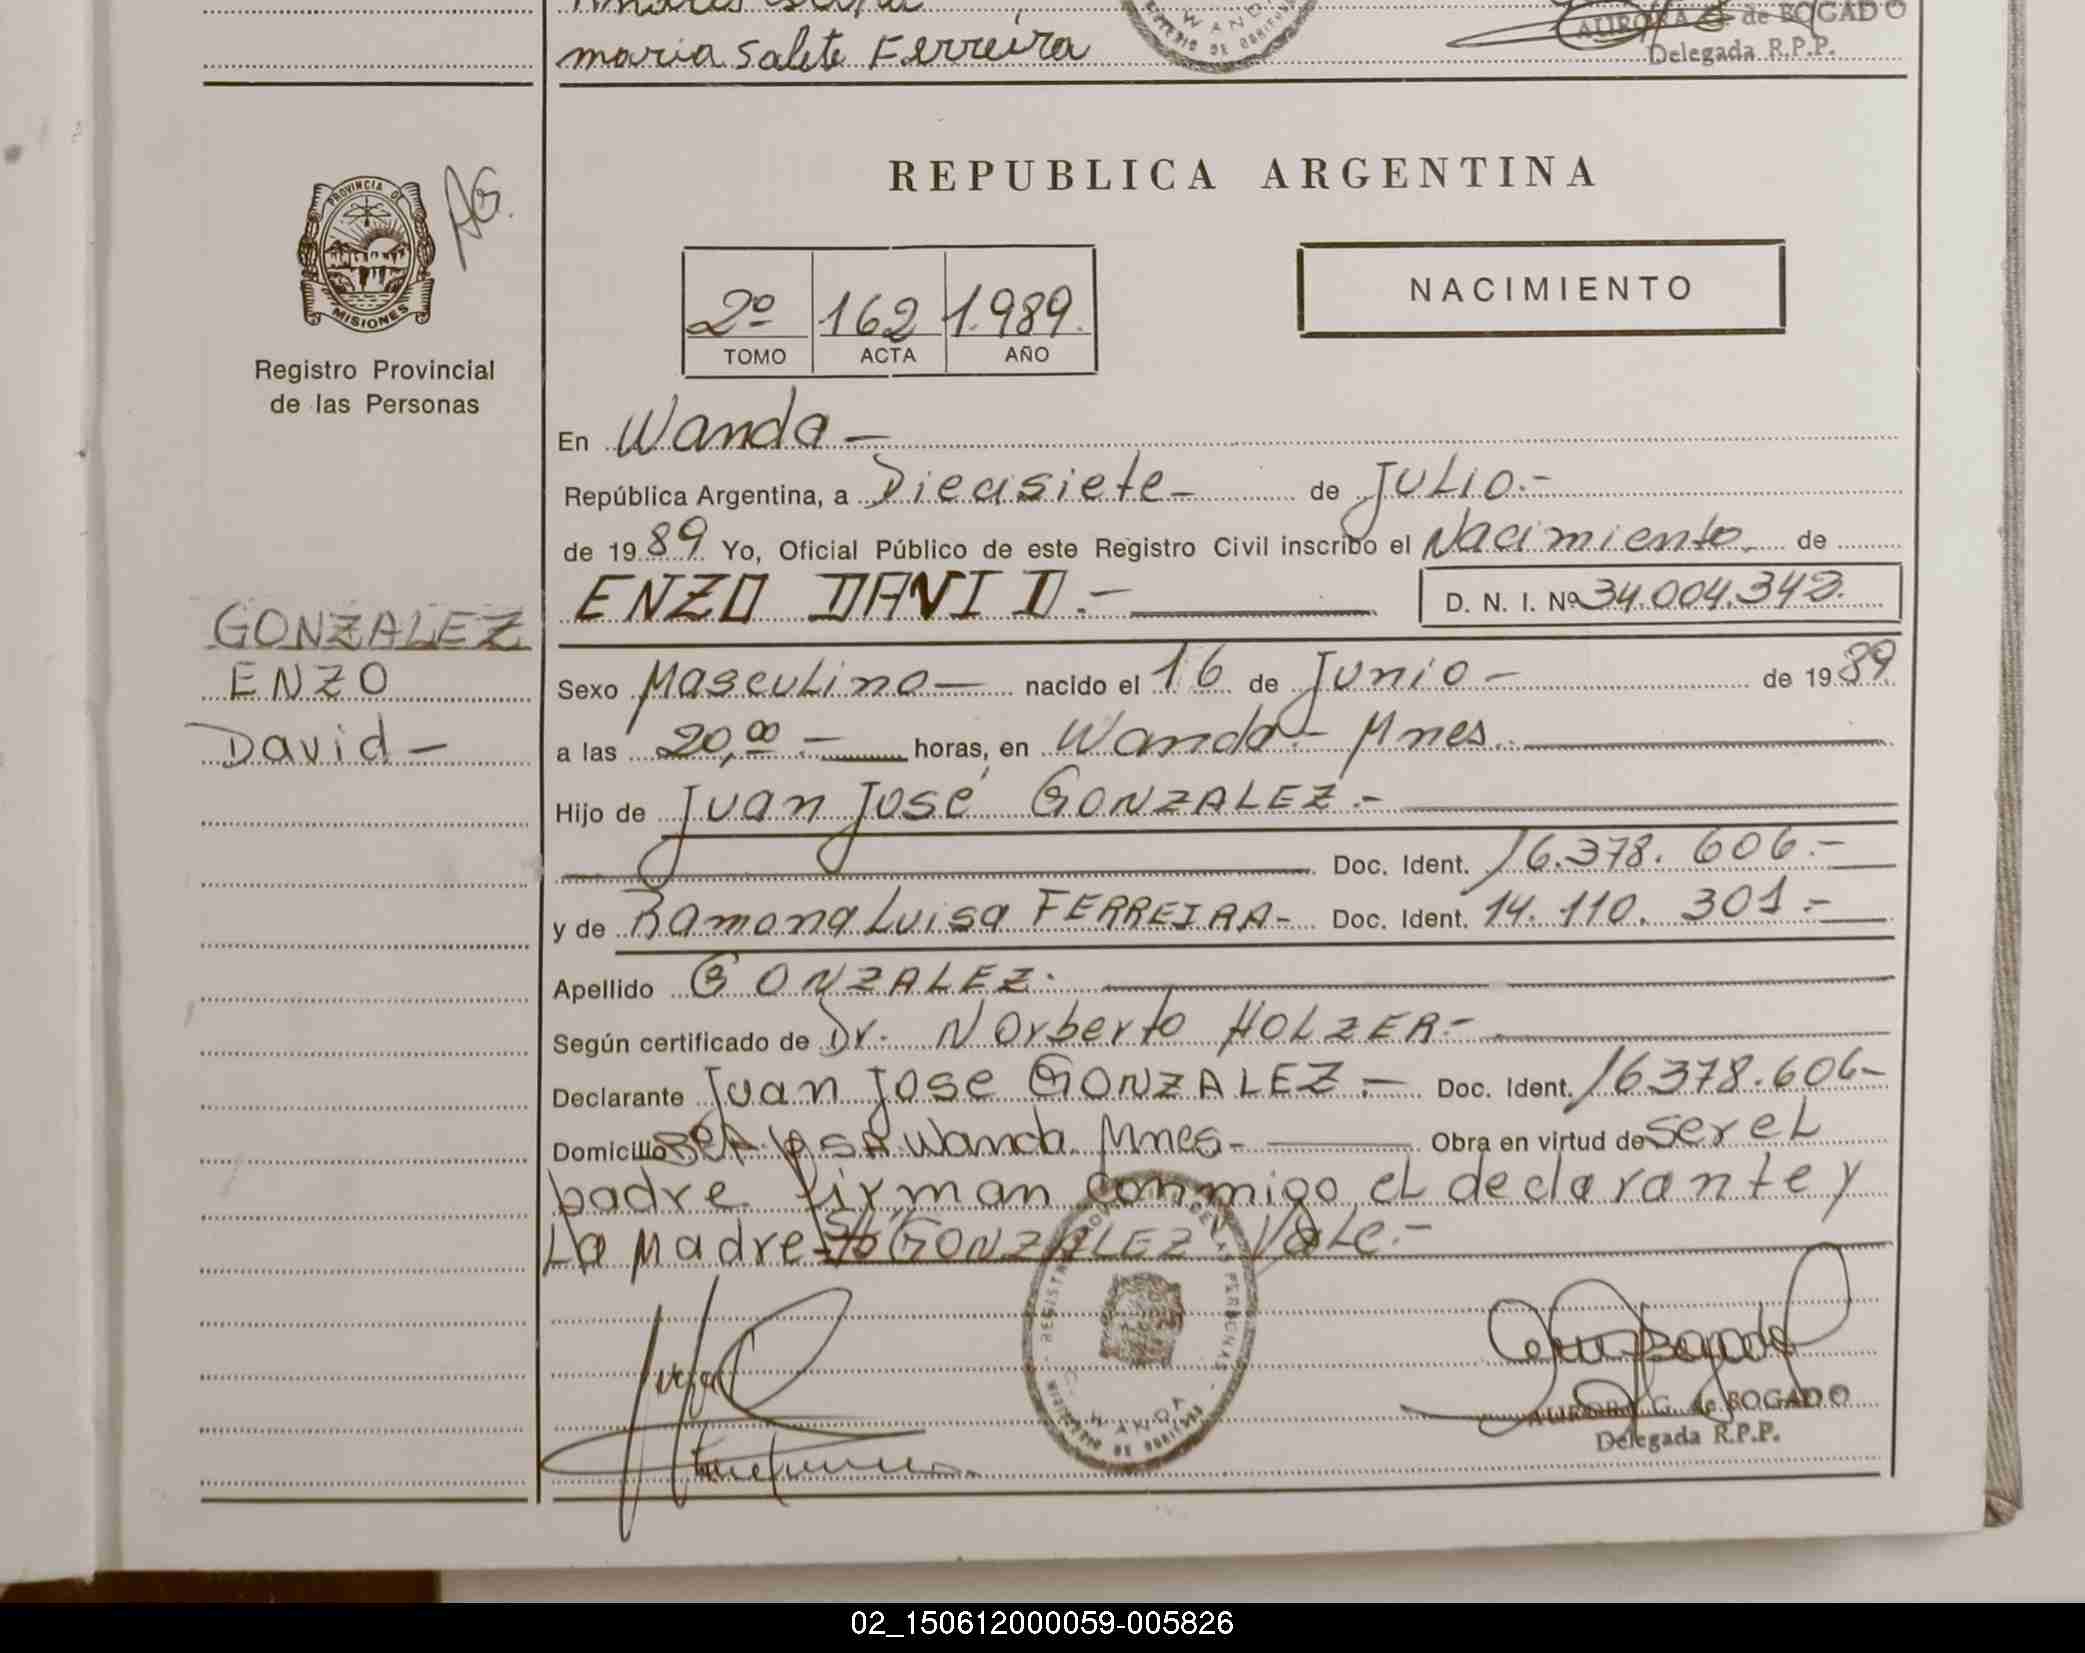 maria Salete Ferreira
AURORA G. de BOGADO
Delegada R.P.P.
WANDA
PROVINCIA DE
MISIONES
AG.
Registro Provincial
de las Personas
REPUBLICA ARGENTINA
2º 162 1.989.
TOMO ACTA AÑO
NACIMIENTO
En Wanda -
República Argentina, a Diecisiete - de JULIO.-
de 1989 Yo, Oficial Público de este Registro Civil inscribo el Nacimiento de
ENZO DAVID.- D. N. I. Nº 34.004.342.
GONZALEZ
ENZO
David -
Sexo Masculino - nacido el 16 de Junio - de 1989
a las 20,00.- horas, en Wanda - Mnes.
Hijo de Juan José GONZALEZ.-
Doc. Ident. 16.378.606.-
y de Ramona Luisa FERREIRA - Doc. Ident. 14.110.301.-
Apellido GONZALEZ.
Según certificado de Dr. Norberto HOLZER -
Declarante Juan Jose GONZALEZ.- Doc. Ident. 16378.606-
Domicilio Wanda Mnes - Obra en virtud de ser el
padre. firman conmigo el declarante y
La Madre - GONZALEZ Vale.-
REGISTRO PROVINCIAL DE LAS PERSONAS
WANDA
AURORA G. de BOGADO
Delegada R.P.P.
02_150612000059-005826